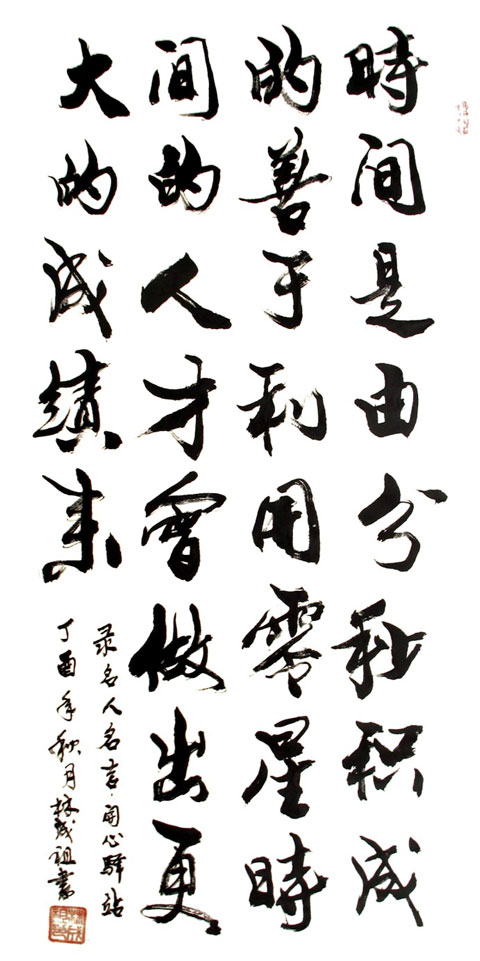 時间是由分秒积成
的善于利用零星時
间的人才會做出更
大的成績来
录名人名言·開心驛站
丁酉年秋月林祖書